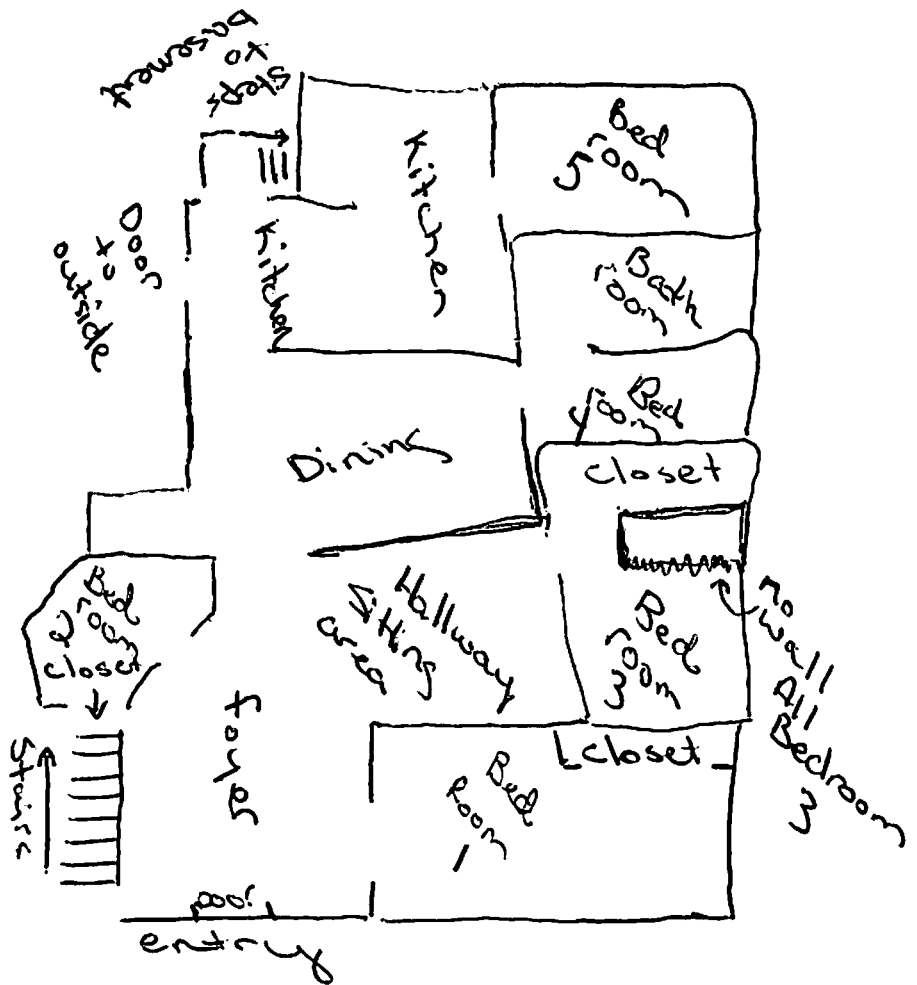 steps
to
basement
Kitchen
Bed
room
5
Door
to
outside
Kitchen
Bath
room
Bed
room
4
Dining
closet
Bed
room
2
closet
Hallway
sitting
area
Bed
room
3
no
wall
All
Bedroom
3
Stairs
foyer
closet
Bed
Room
1
Door
entry